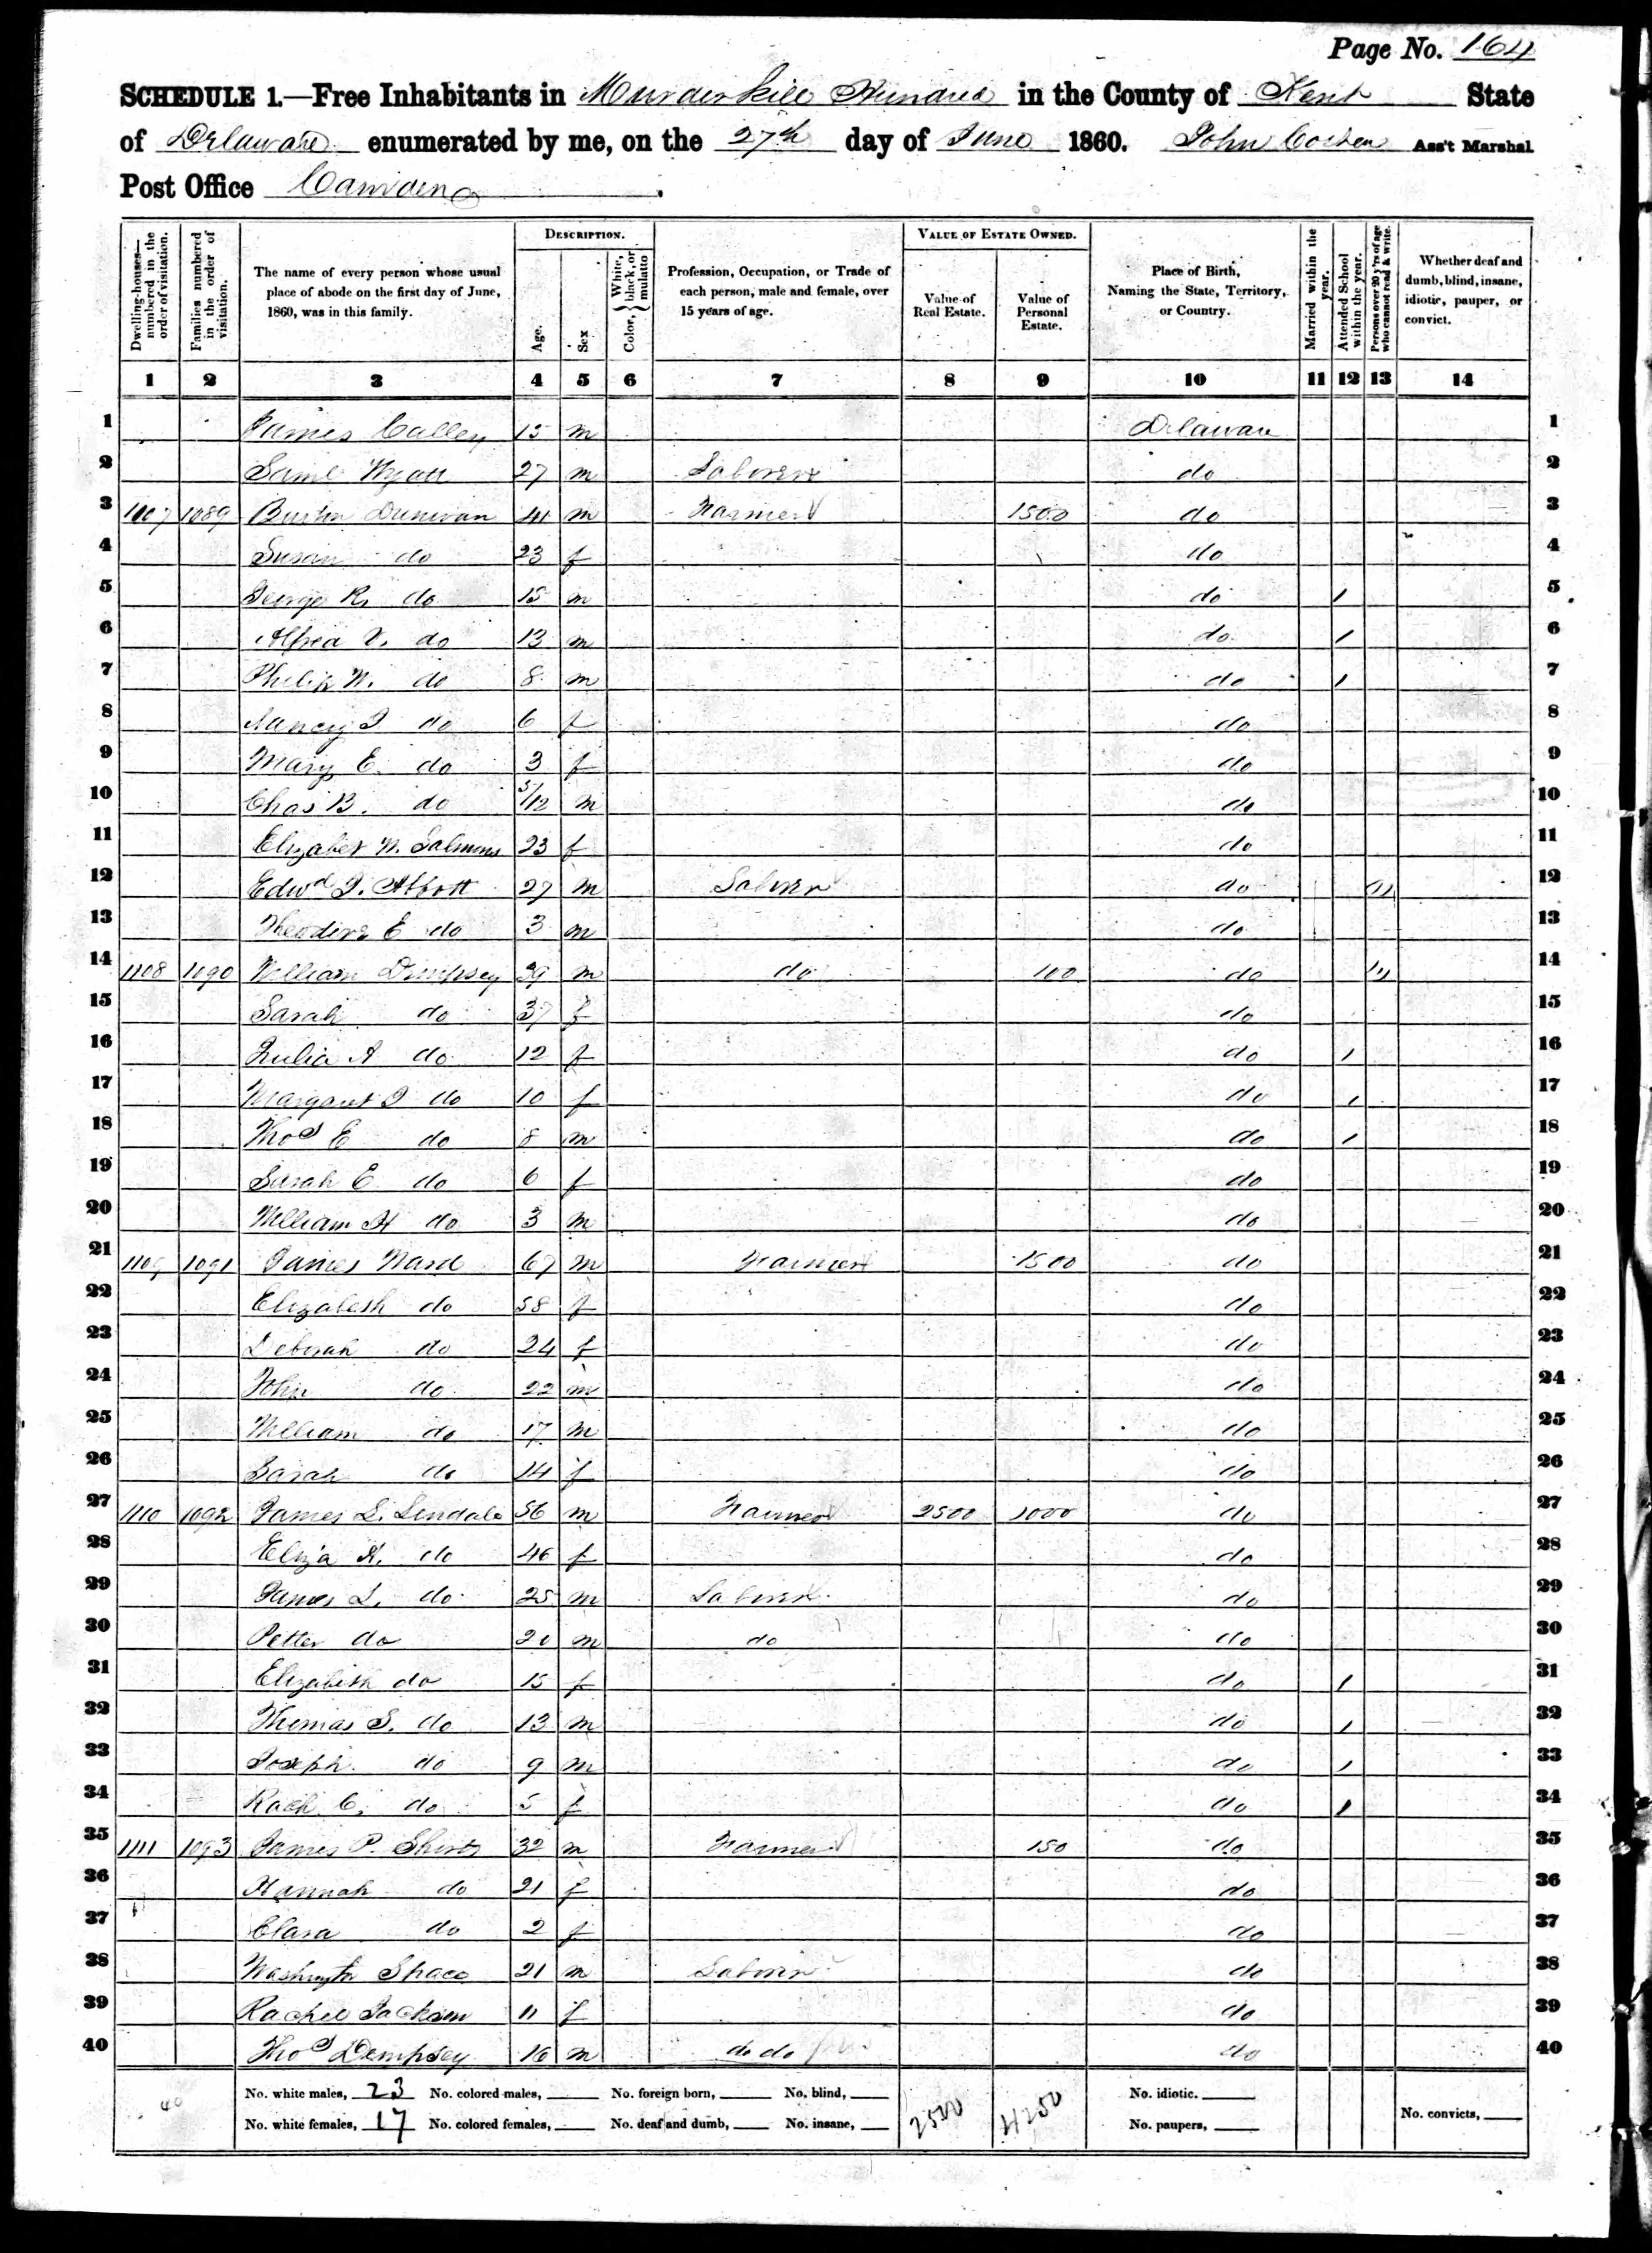 Page No. 164
SCHEDULE 1.—Free Inhabitants in Murderkill Hundred in the County of Kent State
of Delaware enumerated by me, on the 27th day of June 1860. John Ass't Marshal
Post Office Camden
Dwelling-houses—numbered in the order of visitation.
Families numbered in the order of visitation.
The name of every person whose usual place of abode on the first day of June, 1860, was in this family.
DESCRIPTION.
Age.
Sex
Color, White, black, or mulatto
Profession, Occupation, or Trade of each person, male and female, over 15 years of age.
VALUE OF ESTATE OWNED.
Value of Real Estate.
Value of Personal Estate.
Place of Birth, Naming the State, Territory, or Country.
Married within the year.
Attended School within the year.
Persons over 20 y'rs of age who cannot read & write.
Whether deaf and dumb, blind, insane, idiotic, pauper, or convict.
1 2 3 4 5 6 7 8 9 10 11 12 13 14
1 James Calley 15 m Delaware 1
2 Saml Wyatt 27 m Laborer do 2
3 1107 1089 Burton Dunivan 41 m Farmer 1500 do 3
4 Susan do 23 f do 4
5 George R. do 15 m do / 5
6 Alfred V. do 13 m do / 6
7 Philip W. do 8 m do / 7
8 Nancy J do 6 f do 8
9 Mary E. do 3 f do 9
10 Chas B. do 5/12 m do 10
11 Elizabet W. Salmons 23 f do 11
12 Edwd J. Abbott 27 m Laborer do 12
13 Theodire E do 3 m do 13
14 1108 1090 William Dempsey 39 m do 100 do 14
15 Sarah do 37 f do 15
16 Julia A do 12 f do / 16
17 Margaret J do 10 f do / 17
18 Thos E do 8 m do / 18
19 Sarah E do 6 f do 19
20 William H do 3 m do 20
21 1109 1091 James Ward 67 m Farmer 1500 do 21
22 Elizabeth do 58 f do 22
23 Deborah do 24 f do 23
24 John do 22 m do 24
25 William do 17 m do 25
26 Sarah do 14 f do 26
27 1110 1092 James L. Lindale 56 m Farmer 2500 1000 do 27
28 Eliza H. do 46 f do 28
29 James L. do 25 m Laborer do 29
30 Petter do 20 m do do 30
31 Elizabeth do 15 f do / 31
32 Thomas S. do 13 m do / 32
33 Joseph do 9 m do / 33
34 Rach C. do 5 f do / 34
35 1111 1093 James P. 32 m Farmer 150 do 35
36 Hannah do 21 f do 36
37 Clara do 2 f do 37
38 Washington 21 m Laborer do 38
39 Rachel Jackson 11 f do 39
40 Thos Dempsey 16 m do do do 40
40
No. white males, 23 No. colored males, No. foreign born, No. blind, 2500 4250 No. idiotic.
No. white females, 17 No. colored females, No. deaf and dumb, No. insane, No. paupers, No. convicts,